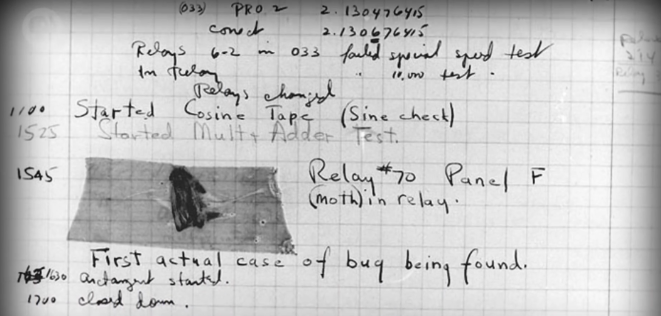 (033) PRO 2 2.130476415
conect 2.130676415
Relays 6-2 in 033 failed special speed test
In Relay " 10,000 test.
Relays changed
1100 Started Cosine Tape (Sine check)
1525 Started Mult+Adder Test.
1545 Relay #70 Panel F
(moth) in relay.
First actual case of bug being found.
1630 arctangent started.
1700 closed down.
Relay